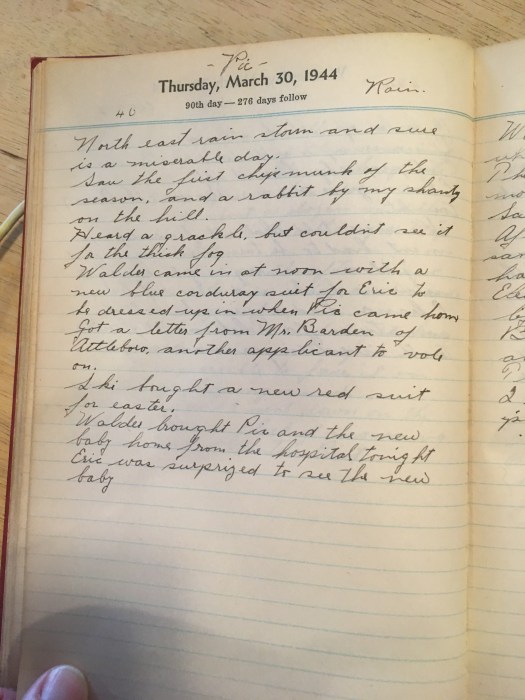 - Pic -
Thursday, March 30, 1944
Rain.
90th day — 276 days follow
40
North east rain storm and sure
is a miserable day.
Saw the first chipmunk of the
season, and a rabbit by my shanty
on the hill.
Heard a grackle, but couldint see it
for the thick fog
Walder came in at noon with a
new blue corduray suit for Eric to
be dressed up in when Pic came home
Got a letter from Mr. Barden of
Attleboro, another applicant to vote
on.
Ski bought a new red suit
for easter.
Walder brought Pic and the new
baby home from the hospital tonight
Eric was surprized to see the new
baby